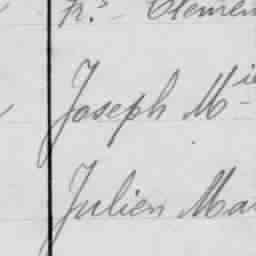 h.s Clemen
Joseph Mie
Julien Mar